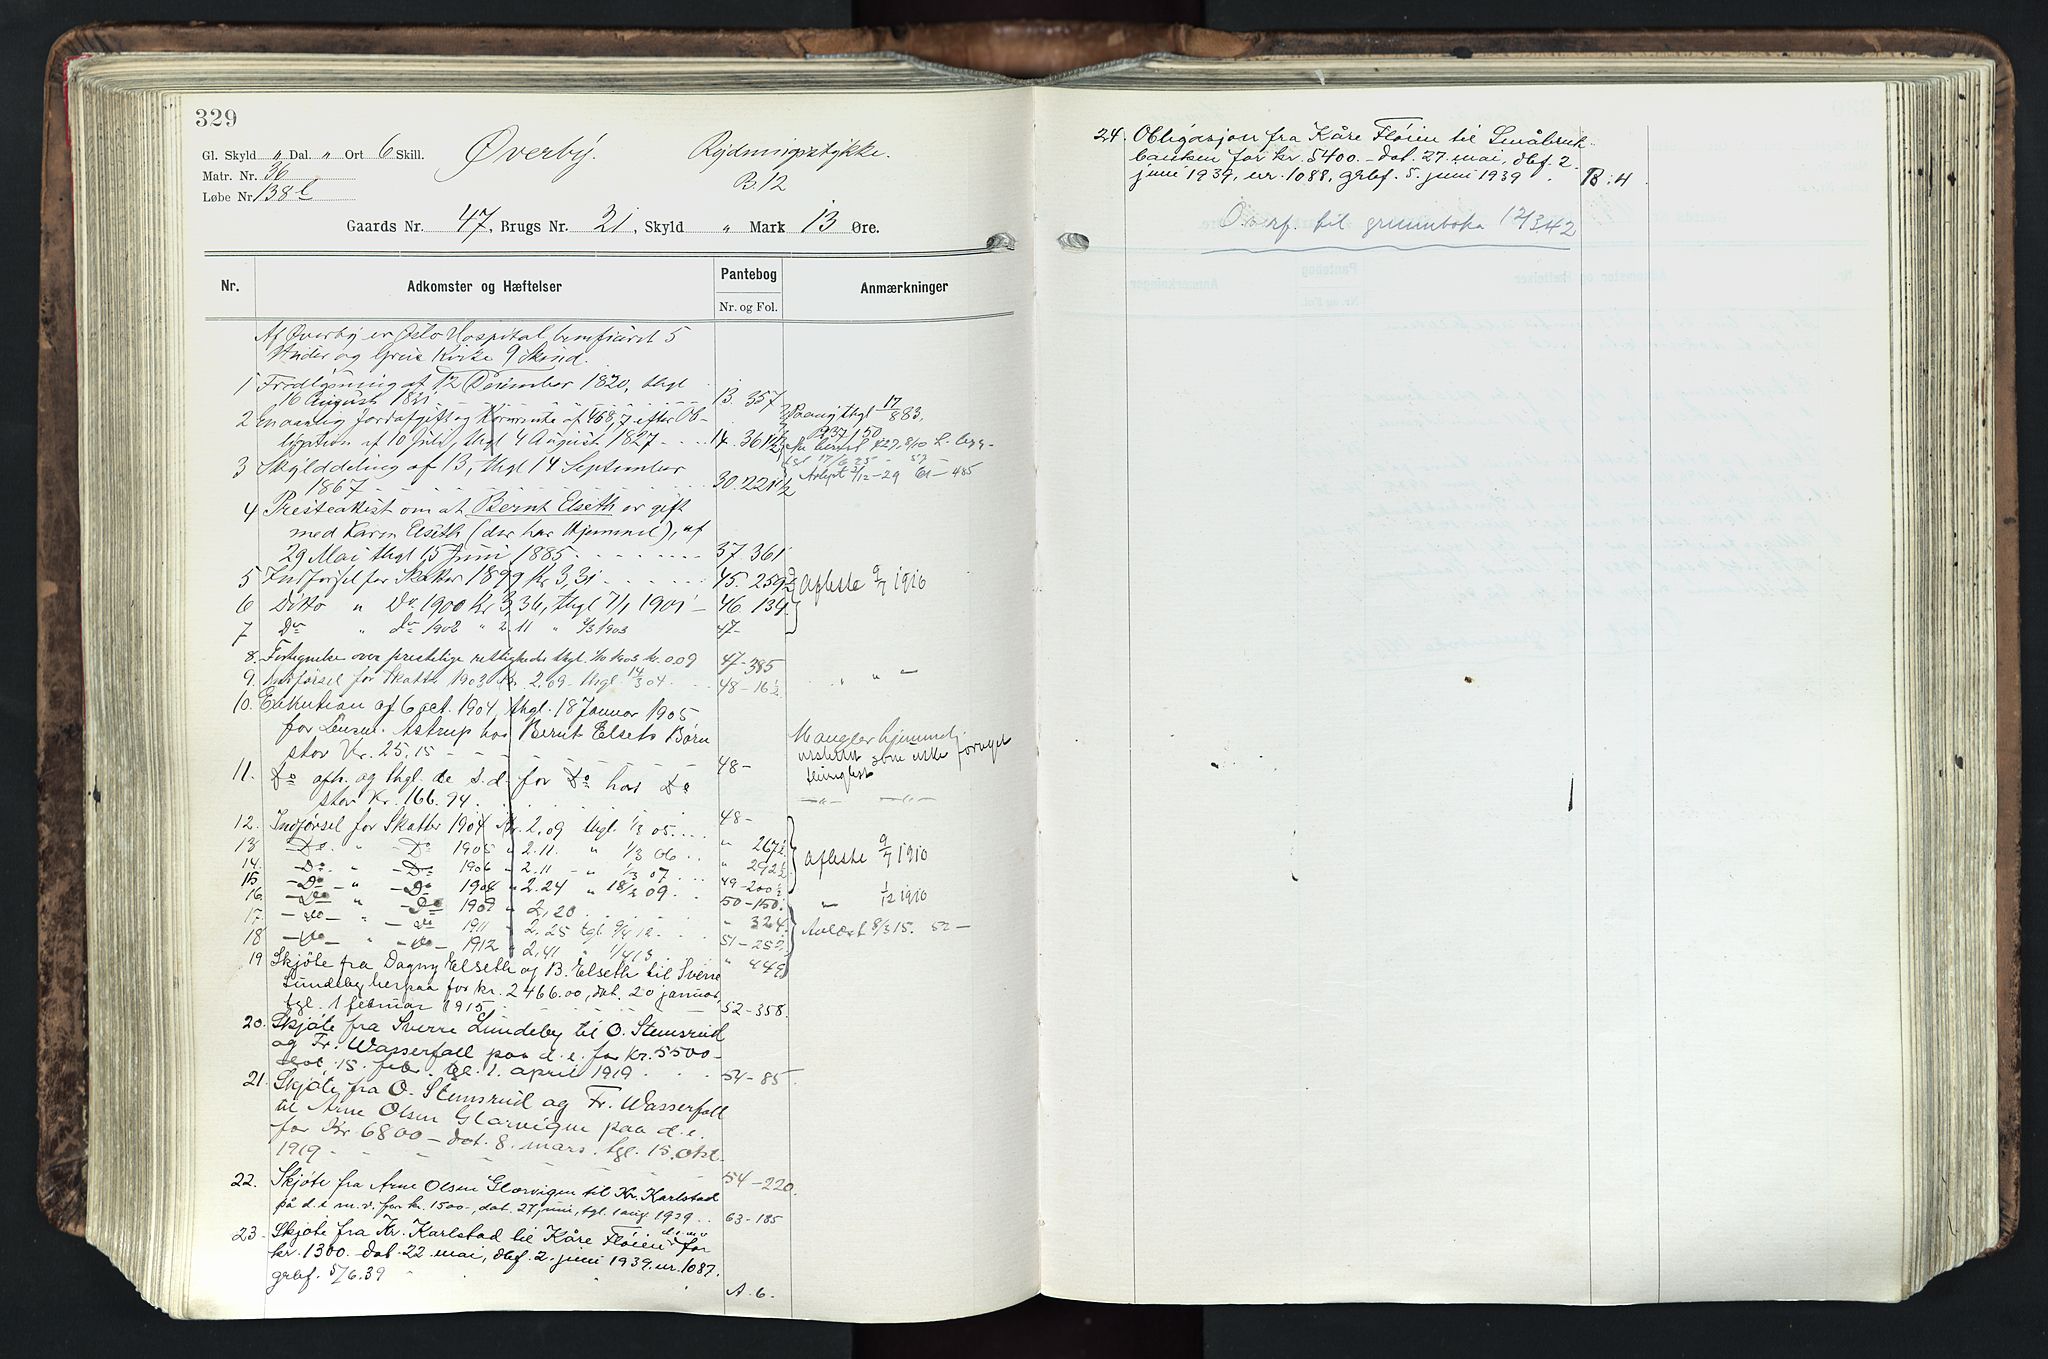 329
Gl. Skyld " Dal. " Ort 6 Skill. Øverby. Rydningsstykke.
Matr. Nr. 36 B. 12
Løbe Nr. 138 b
Gaards Nr. 47, Brugs Nr. 21, Skyld " Mark 13 Øre.
Nr. Adkomster og Hæftelser Pantebog Anmærkninger
Nr. og Fol.
Af Øverby er Oslo Hospital beneficeret 5
og Kirke 9 Skind.
1 Fredlysning af 12 December 1820, thgl
16 August 1821 13. 357
2 En aarlig Jordafgift og Kornrente af efter Ob-
ligation af 10 Juli, thgl 4 August 1827 - - 14. 361½
3 Skylddeling af 13, thgl 14 September
1867 30. 221½ Avlyst 3/12-29
4 Presteattest om at Bernt Elseth er gift
med Karen Elseth (der har Hjemmel), af
29 Mai thgl 15 Juni 1885 37 361
5 Indførsel for Skatter 1899 Kr 3,31 45. 259½ Afleste 9/7 1910
6 Ditto " Do 1900 Kr 3,36, thgl 7/1 1901 - 46 139
7 Do " Do 1902 " 2.11 " 2/3 1903 47-
8. Fortegnelse over prestelige rettigheder thgl. 1903 kr. 0.09 47-385
9. Indførsel for Skatter 1903 Kr. 2,09 - thgl. 14/3 04. 48-16½ " " -
10. Exekution af 6 oct. 1904, thgl. 18 Januar 1905
for Lensm. Astrup hos Bernt Elsets Børn Mangler hjemmel,
stor Kr. 25,15 48-
11. Do afh. og thgl. de s.d. for Do hos Do
stor Kr. 166.94. 48-
12. Indførsel for Skatter 1904 Kr. 2,09 thgl. 1/3 05. " 267½
13 - Do. " - Do 1905 " 2.11. " 1/3 06 .. " 292½ Afleste 9/7 1910
14. - Do. " - Do 1906 " 2.11 - " 1/3 07 49-200½
15 - Do - " - Do 1908 " 2.24 " 18/2 09. 50-150. " 1/12 1910
16. - Do " Do 1909 " 2,20 " 324.
17. - Do - " - Do 1911 " 2,25 tgl 9/4 12. 51-252 Avlæst 8/3 15. 52-
18 - Do - " - Do - 1912 " 2,41 " 1/4 13 " 449
19 Skjøte fra Dagny Elseth og B. Elseth til Sverre
Lundeby herpaa for kr. 2466.00, dat. 20 januar,
tgl. 1 februar 1915 52-358.
20. Skjøte fra Sverre Lundeby til O. Stemsrud
og Fr. Wasserfall paa d. e. for Kr. 5500-
dat. 15. febr. tgl. 1. april 1919 54-85
21. Skjøte fra O. Stemsrud og Fr. Wasserfall
til Arne Olsen Glorvigen paa d. e.
for Kr 6800 - dat. 8. mars. tgl. 15. okt.
1919 54-220.
22. Skjøte fra Arne Olsen Glorvigen til Kr. Karlstad
på d. e m. v. for kr. 1500-, dat. 27 juni, tgl. 1 aug. 1939 63-185
23. Skjøte fra Kr. Karlstad til Kåre Fløien d. e. m. v for
kr. 1300.- dat. 22. mai, dbf. 2. juni 1939. nr. 1087.
grbf. 5/6.39 A. 6.
24. Obligasjon fra Kåre Fløien til Småbruk-
banken for kr. 5400.- dat. 27. mai, dbf. 2.
juni 1939, nr. 1088, grbf. 5. juni 1939 B: 4
Overf. til grunnboka 12/3 42